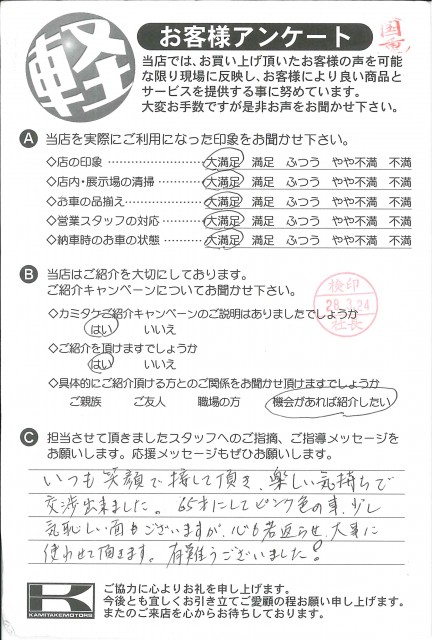 軽
お客様アンケート
当店では、お買い上げ頂いたお客様の声を可能
な限り現場に反映し、お客様により良い商品と
サービスを提供する事に努めています。
大変お手数ですが是非お声をお聞かせ下さい。
A 当店を実際にご利用になった印象をお聞かせ下さい。
◇店の印象 大満足 満足 ふつう やや不満 不満
◇店内・展示場の清掃 大満足 満足 ふつう やや不満 不満
◇お車の品揃え 大満足 満足 ふつう やや不満 不満
◇営業スタッフの対応 大満足 満足 ふつう やや不満 不満
◇納車時のお車の状態 大満足 満足 ふつう やや不満 不満
B 当店はご紹介を大切にしております。
ご紹介キャンペーンについてお聞かせ下さい。
検印
28.3.24
社長
◇カミタケご紹介キャンペーンのご説明はありましたでしょうか
はい いいえ
◇ご紹介を頂けますでしょうか
はい いいえ
◇具体的にご紹介頂ける方とのご関係をお聞かせ頂けますでしょうか
ご親族 ご友人 職場の方 機会があれば紹介したい
C 担当させて頂きましたスタッフへのご指摘、ご指導メッセージを
お願いします。応援メッセージもぜひお願いします。
いつも笑顔で接して頂き、楽しい気持ちで
交渉出来ました。65才にしてピンク色の車、少し
気恥しい面もございますが、心も若返らせ、大事に
使わせて頂きます。有難うございました!
K
KAMITAKEMOTORS
ご協力に心よりお礼を申し上げます。
今後とも宜しくお引き立てご愛顧の程お願い申し上げます。
またのご来店を心からお待ちしております。